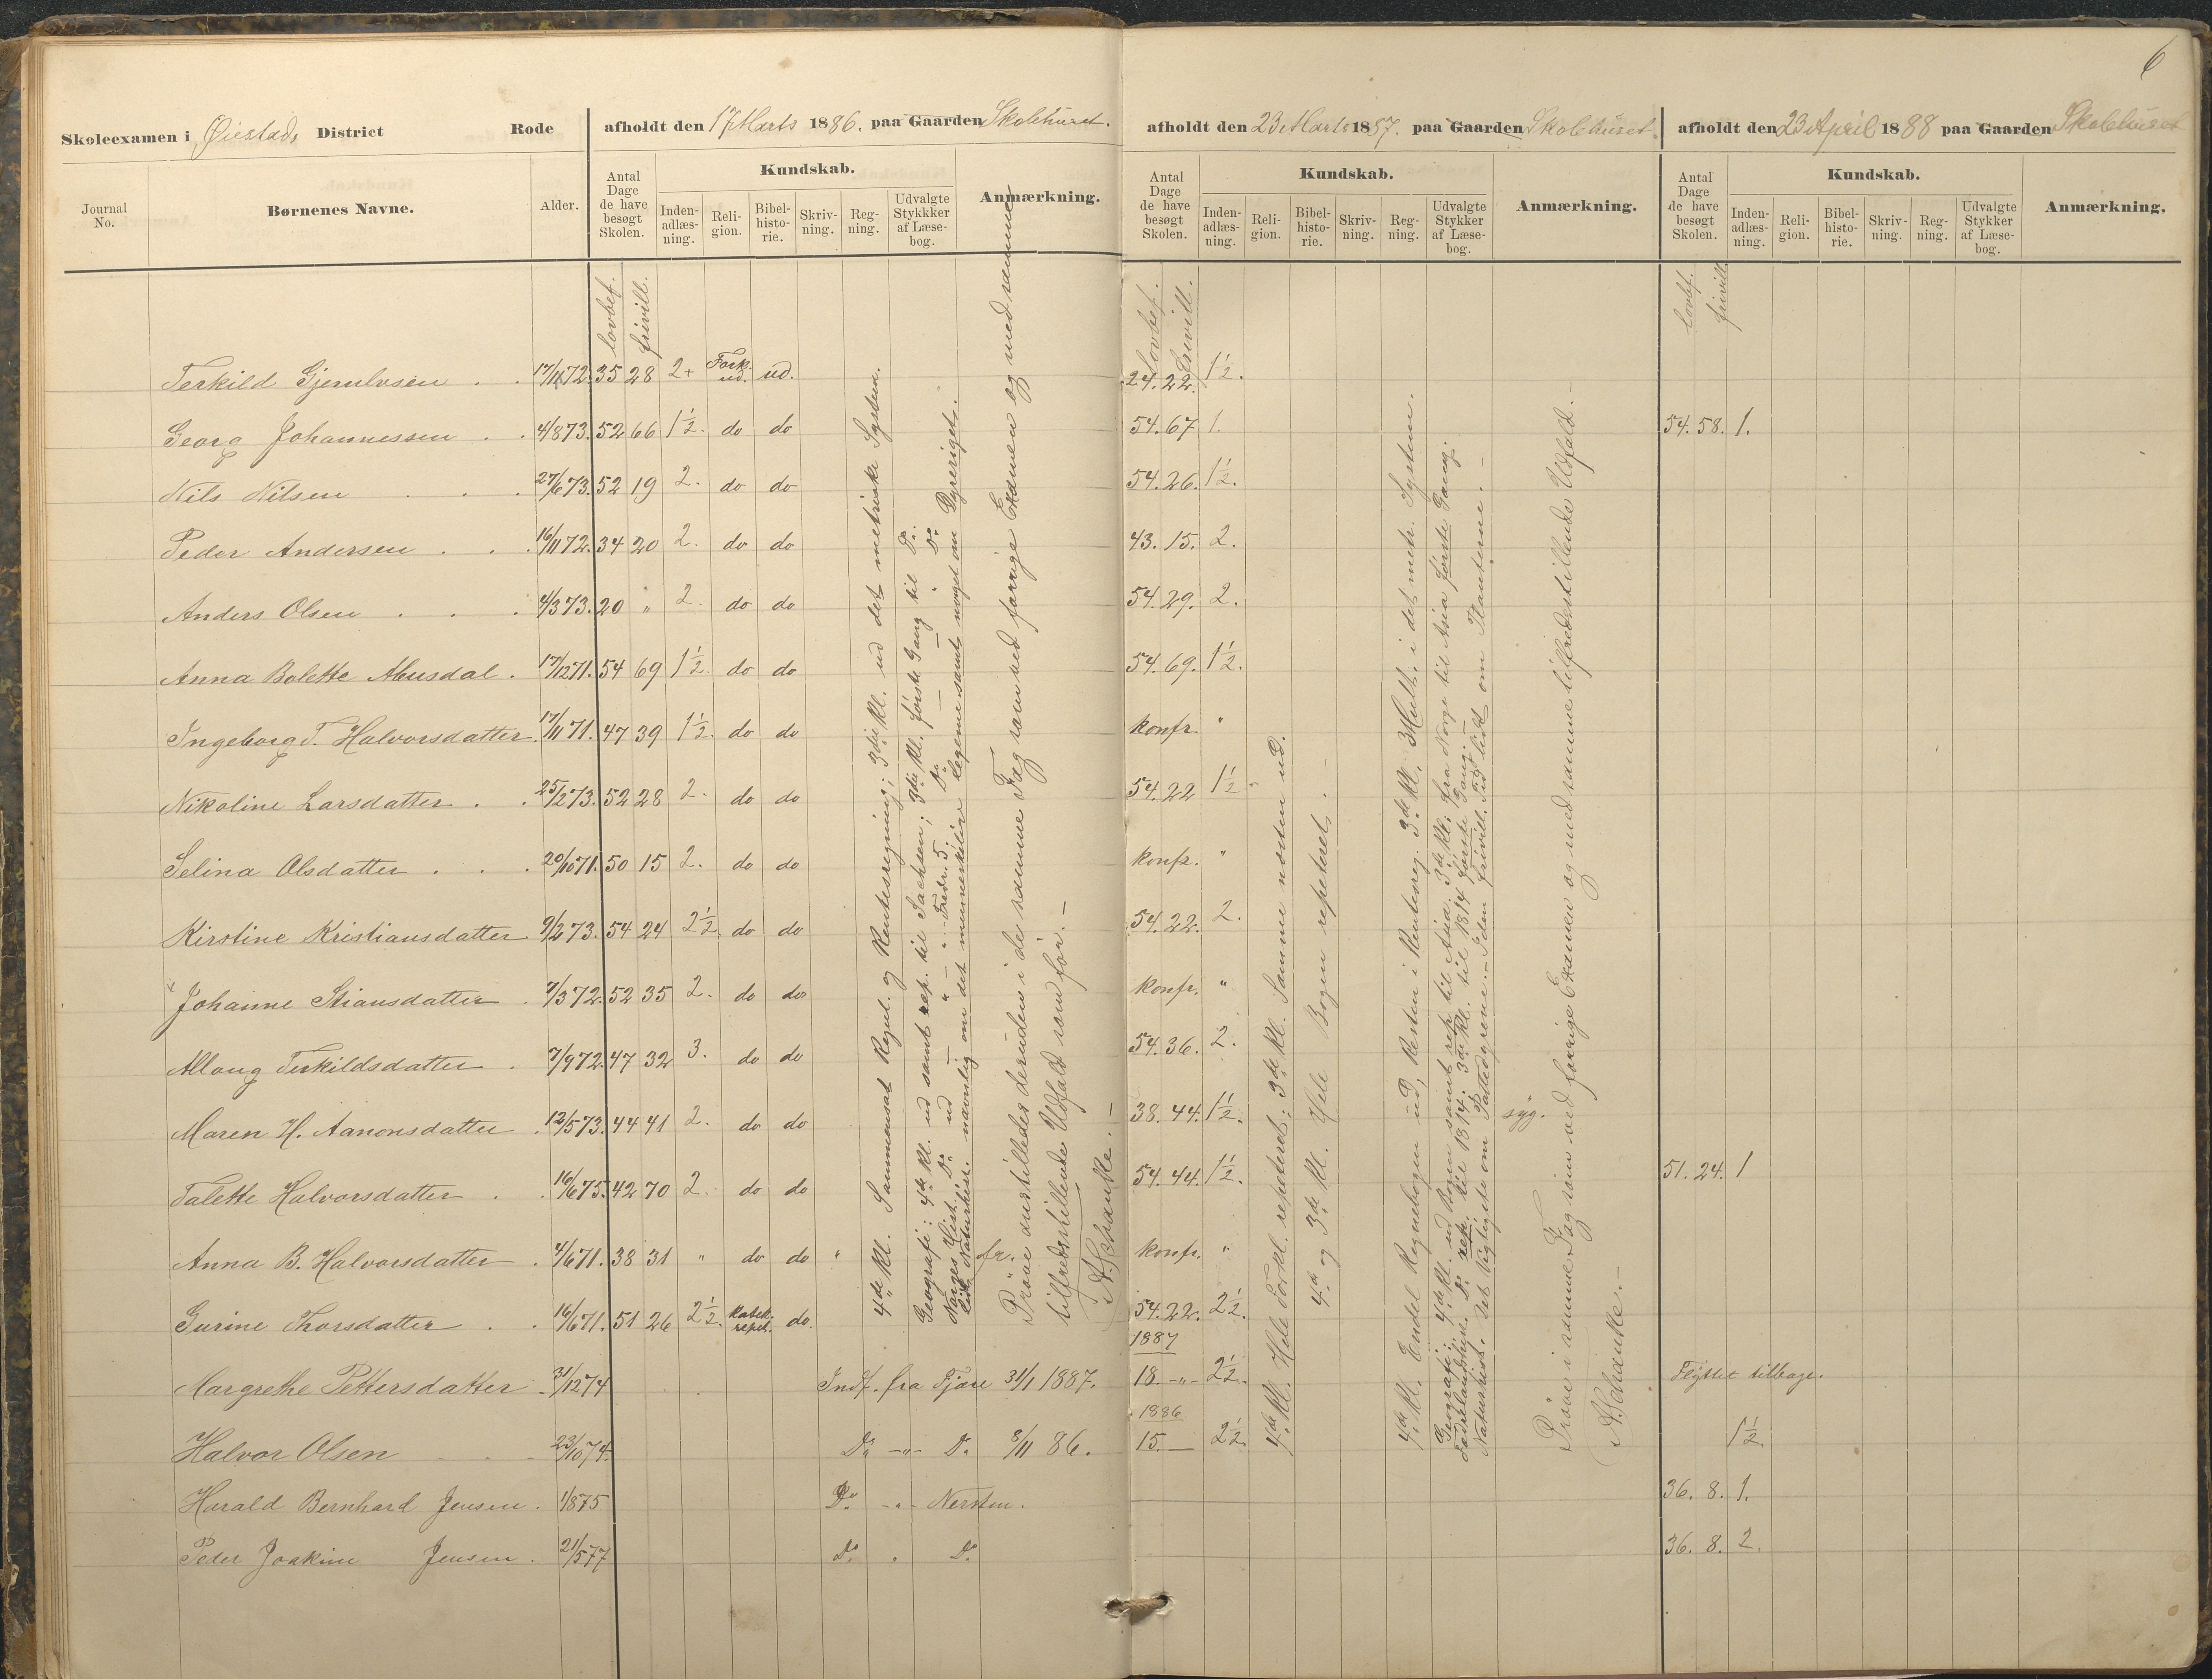 6
Skoleexamen i Øiestads District Rode afholdt den 17 Marts 1886. paa Gaarden Skolehuset. afholdt den 23 Marts 1887. paa Gaarden Skolehuset afholdt den 23 April 1888 paa Gaarden Skolehuset
Journal No. Børnenes Navne. Alder. Antal Dage de have besøgt Skolen. Kundskab. Inden-adlæs-ning. Reli-gion. Bibel-histo-rie. Skriv-ning. Reg-ning. Udvalgte Stykkker af Læse-bog. Anmærkning.
Antal Dage de have besøgt Skolen. Kundskab. Inden-adlæs-ning. Reli-gion. Bibel-histo-rie. Skriv-ning. Reg-ning. Udvalgte Stykker af Læse-bog. Anmærkning.
Antal Dage de have besøgt Skolen. Kundskab. Inden-adlæs-ning. Reli-gion. Bibel-histo-rie. Skriv-ning. Reg-ning. Udvalgte Stykker af Læse-bog. Anmærkning.
lovbef. frivill. Lovbef. Frivill. lovbf. frivill.
Terkild 17/11 72. 35 28 2+ Fork. ud. ud. 24. 22. 1½.
Georg Johannessen . . 4/8 73. 52 66 1½. do do 54. 67 1. 54. 58. 1.
Nils Nilsen . . . 27/6 73. 52 19 2. do do 54. 26. 1½.
Peder Andersen . . . 16/11 72. 34 20 2. do do 43. 15. 2.
Anders Olsen . . . 4/3 73. 20 " 2. do do 54. 29. 2.
Anna Bolette . 17/12 71. 54 69 1½. do do 54. 69. 1½.
Ingeborg T. Halvorsdatter. 17/11 71. 47 39 1½. do do konfr. "
Nikoline Larsdatter . . 25/2 73. 52 28 2. do do 54. 22 1½
Selina Olsdatter . . . 20/10 71. 50 15 2. do do konfr. "
Kirstine Kristiansdatter 9/2 73. 54 24 2½. do do 54. 22. 2.
Johanne Stiansdatter . 7/3 72. 52 35 2. do do konfr. "
Terkildsdatter . 7/9 72. 47 32 3. do do 54. 36. 2.
Maren H. Aanonsdatter . 12/5 73. 44 41 2. do do 38. 44. 1½. syg.
Talette Halvorsdatter . . 16/6 75. 42 70 2. do do 54. 44. 1½. 51. 24. 1
Anna B. Halvorsdatter . 4/6 71. 38 31 " do do " fr. konfr. "
Gurine Thorsdatter . . 16/6 71. 51 26 2½. repet. do. 54. 22. 2½.
Margrethe Pettersdatter . 31/12 74 Indf. fra Fjære 31/1 1887. 1887 18. -"- 2½. Flyttet tilbage.
Halvor Olsen . . . 23/10 74. Do. -"- Do. 8/11 86. 1886 15. — 2½ 1½.
Harald Bernhard Jensen . 1/8 75 Do. -"- 36. 8. 1.
Peder Joakim Jensen . 21/5 77 Do. " Do. 36. 8. 2.
4de Kl. Sammensat Regul. og Rentesregning; 3die Kl. ud det metriske System.
Geografi: 4de Kl. ud samt rep. til Sachsen; 3die Kl. første Gang til Do.
Norges Hist. Do. ud — " — " Fredr. 5. Do. — " Do.
Naturhist. navnlig om det menneskelige legeme samt noget om Dyreriget.
Prøve anstilledes desuden i de samme Fag som ved forrige Examen og med samme
tilfredsstillende Udfald som før. —
A. Schanke. —
4de Kl. Hele Forkl. repeteret; 3de Kl. Samme næsten ud.
4de og 3de Kl. Hele Bogen repeteret.
4de Kl. Endel Regnebogen ud, Resten i Rentesreg. 3de Kl. 3 Mult. i det metr. System.
Geografi: 4de Kl. ud Bogen samt rep. til Asia. 3de Kl. fra Norge til Asia første Gang.
Fædrelandshist. Do. rep. til 1814. 3de Kl. til 1814 første Gang. —
Naturhist. Det Vigtigste om Pattedyrene. — I den frivill. Tid lidt om Planterne. —
Prøve i samme Fag som ved forrige Examen og med samme tilfredsstillende Udfald. —
A. Schanke. —